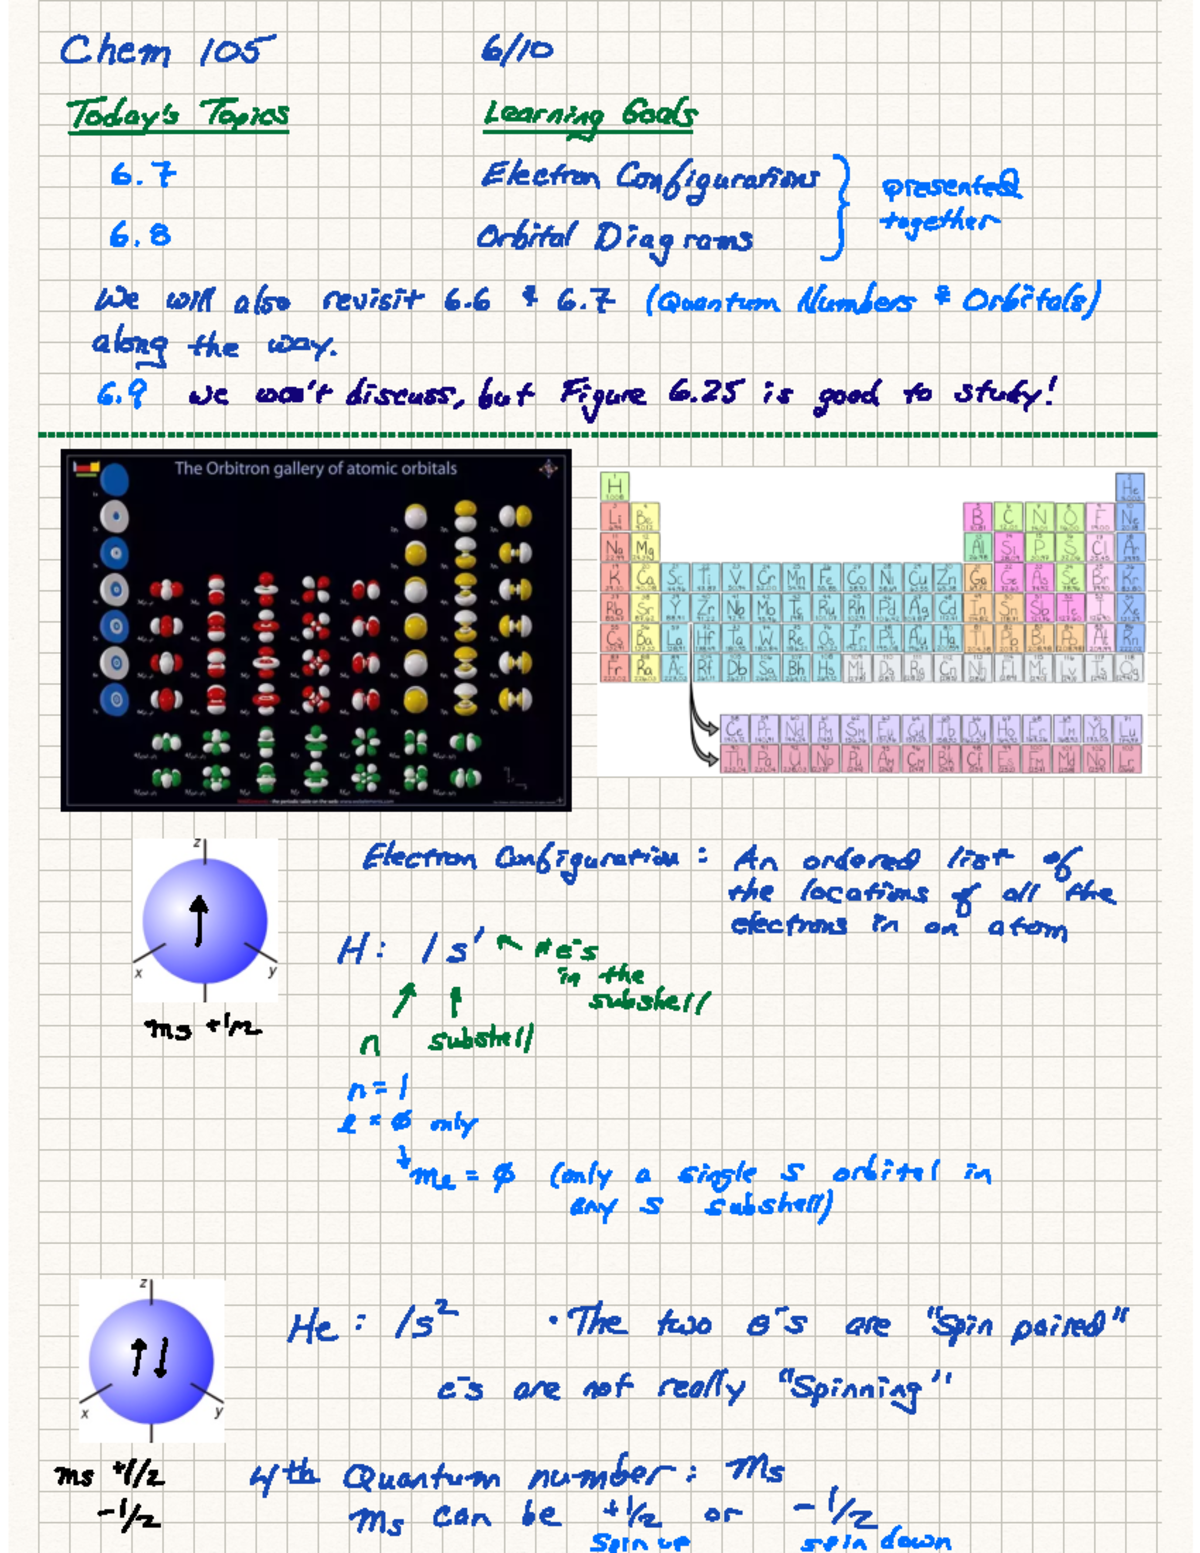 Chem 105 6/10
Today's Topics Learning Goals
6.7 Electron Configurations
6.8 Orbital Diagrams
presented
together
We will also revisit 6.6 & 6.7 (Quantum Numbers & Orbitals)
along the way.
6.9 we won't discuss, but Figure 6.25 is good to study!
The Orbitron gallery of atomic orbitals
H He
Li Be B C N O F Ne
Na Mg Al Si P S Cl Ar
K Ca Sc Ti V Cr Mn Fe Co Ni Cu Zn Ga Ge As Se Br Kr
Rb Sr Y Zr Nb Mo Tc Ru Rh Pd Ag Cd In Sn Sb Te I Xe
Cs Ba La Hf Ta W Re Os Ir Pt Au Hg Pb Bi Po At Rn
Fr Ra Ac Rf Db Sg Bh Hs Mt Ds Rg Cn Nh Fl Mc Lv Ts Og
Ce Pr Nd Pm Sm Eu Gd Tb Dy Ho Er Tm Yb Lu
Th Pa U Np Pu Am Cm Bk Cf Es Fm Md No Lr
z
x y
ms +1/2
Electron Configuration: An ordered list of
the locations of all the
electrons in an atom
H: 1s¹ # e⁻s
in the
subshell
n subshell
n = 1
l = ∅ only
mℓ = ∅ (only a single s orbital in
any s subshell)
z
x y
He: 1s² • The two e⁻s are "Spin paired"
e⁻s are not really "Spinning"
ms +1/2
-1/2
4th Quantum number: Ms
ms can be +1/2 or -1/2
Spin up spin down